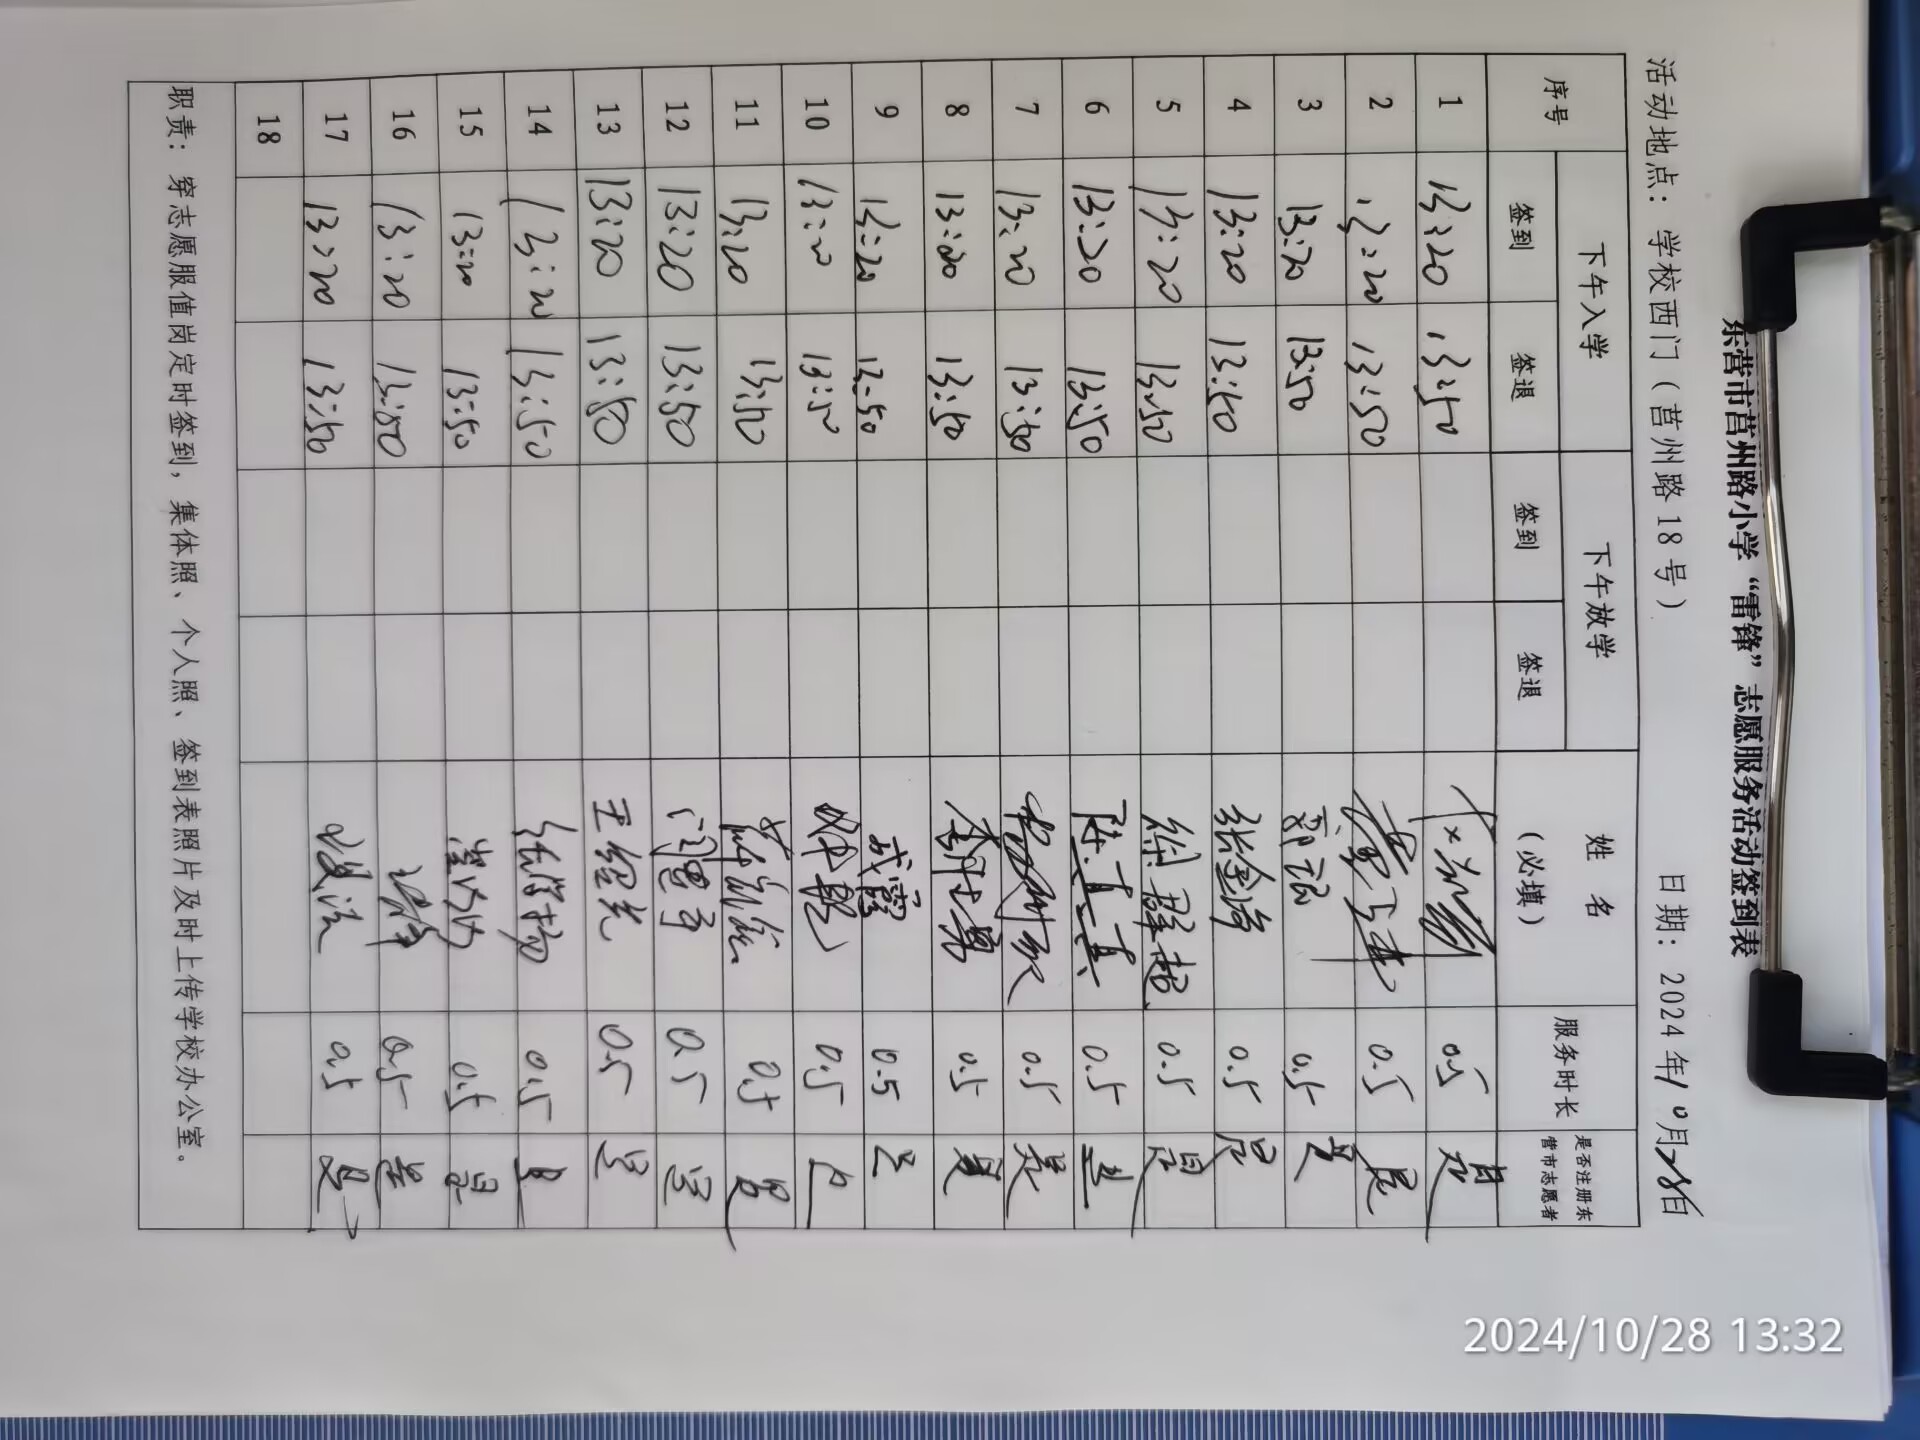 东营市莒州路小学“雷锋”志愿服务活动签到表
活动地点：学校西门（莒州路18号） 日期：2024年10月28日
序号 下午入学 下午放学 姓名（必填） 服务时长 是否注册东营市志愿者
签到 签退 签到 签退
1 13:20 13:50 0.5 是
2 13:20 13:50 0.5 是
3 13:20 13:50 0.5 是
4 13:20 13:50 0.5 是
5 13:20 13:50 徐群超 0.5 是
6 13:20 13:50 陈真真 0.5 是
7 13:20 13:50 0.5 是
8 13:20 13:50 0.5 是
9 13:20 13:50 成霞 0.5 是
10 13:20 13:50 0.5 是
11 13:20 13:50 0.5 是
12 13:20 13:50 0.5 是
13 13:20 13:50 0.5 是
14 13:20 13:50 0.5 是
15 13:20 13:50 0.5 是
16 13:20 13:50 0.5 是
17 13:20 13:50 0.5 是
18
职责：穿志愿服值岗定时签到，集体照、个人照、签到表照片及时上传学校办公室。
2024/10/28 13:32